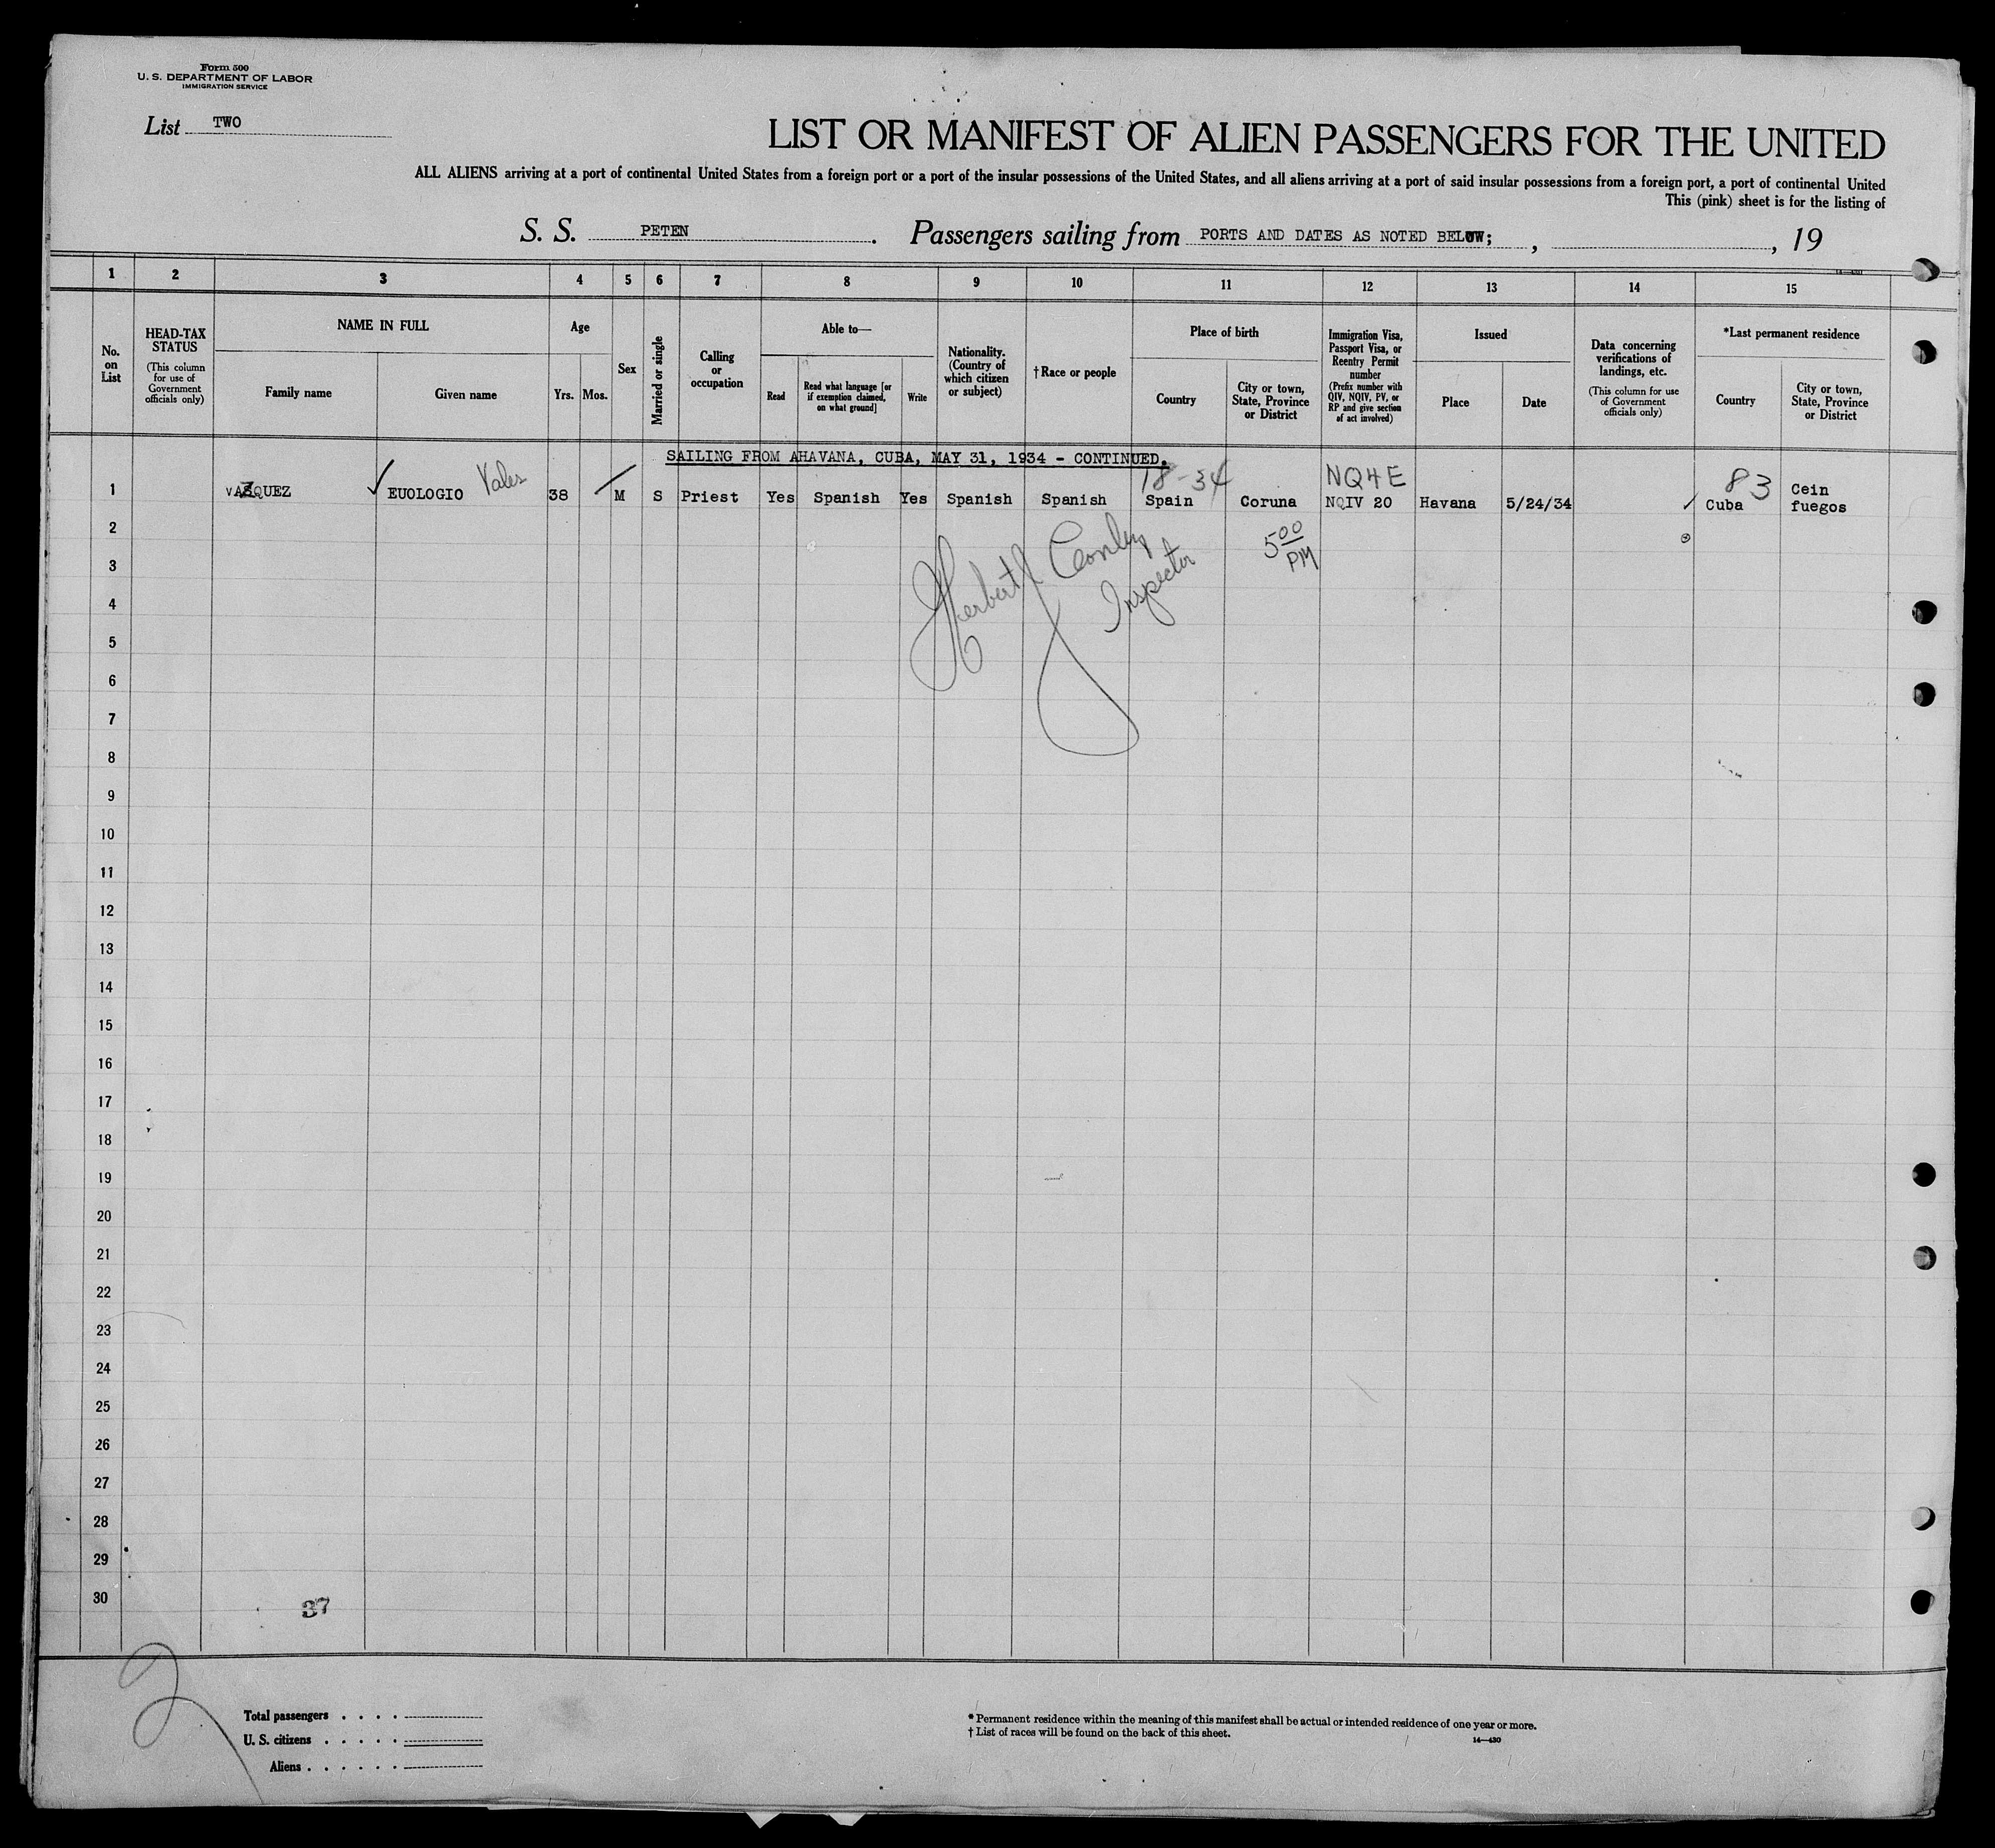 Form 500
U. S. DEPARTMENT OF LABOR
IMMIGRATION SERVICE
List TWO
LIST OR MANIFEST OF ALIEN PASSENGERS FOR THE UNITED
ALL ALIENS arriving at a port of continental United States from a foreign port or a port of the insular possessions of the United States, and all aliens arriving at a port of said insular possessions from a foreign port, a port of continental United
This (pink) sheet is for the listing of
S. S. PETEN . Passengers sailing from PORTS AND DATES AS NOTED BELOW; , , 19
14—430
1 2 3 4 5 6 7 8 9 10 11 12 13 14 15
No. on List
HEAD-TAX STATUS
(This column for use of Government officials only)
NAME IN FULL
Family name
Given name
Age
Yrs. Mos.
Sex
Married or single
Calling or occupation
Able to—
Read
Read what language [or if exemption claimed, on what ground]
Write
Nationality. (Country of which citizen or subject)
†Race or people
Place of birth
Country
City or town, State, Province or District
Immigration Visa, Passport Visa, or Reentry Permit number
(Prefix number with QIV, NQIV, PV, or RP and give section of act involved)
Issued
Place
Date
Data concerning verifications of landings, etc.
(This column for use of Government officials only)
*Last permanent residence
Country
City or town, State, Province or District
SAILING FROM AHAVANA, CUBA, MAY 31, 1934 - CONTINUED.
18-34 NQ4E 83
1 VAZQUEZ ✓ EUOLOGIO Vales 38 M S Priest Yes Spanish Yes Spanish Spanish Spain Coruna NQIV 20 Havana 5/24/34 ✓ Cuba Cein fuegos
2
5 00 PM
3
Herbert J Conley
Inspector
4
5
6
7
8
9
10
11
12
13
14
15
16
17
18
19
20
21
22
23
24
25
26
27
28
29
30
37
2
Total passengers . . . .
U. S. citizens . . . . .
Aliens . . . . . .
* Permanent residence within the meaning of this manifest shall be actual or intended residence of one year or more.
† List of races will be found on the back of this sheet.
14—430